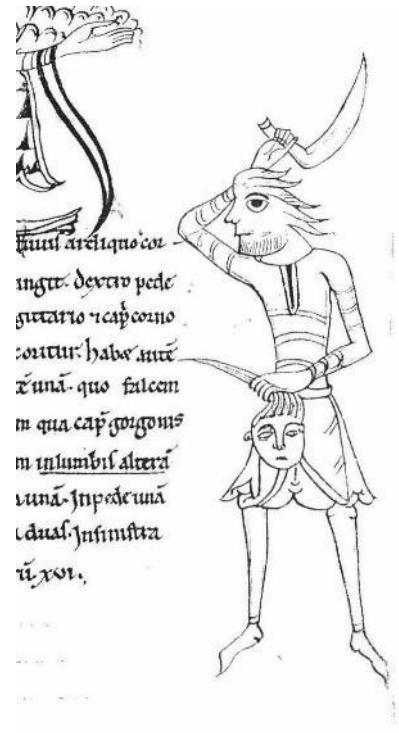 a reliquo cor
angit. dextro pede
gittario ⁊ cap̃ corno
coritur. habꝫ autẽ
unã. quo falcem
m qua cap̃ gorgonis
in lumbis alterã
unã. In pede unã
duas. In sinistra
xvi.